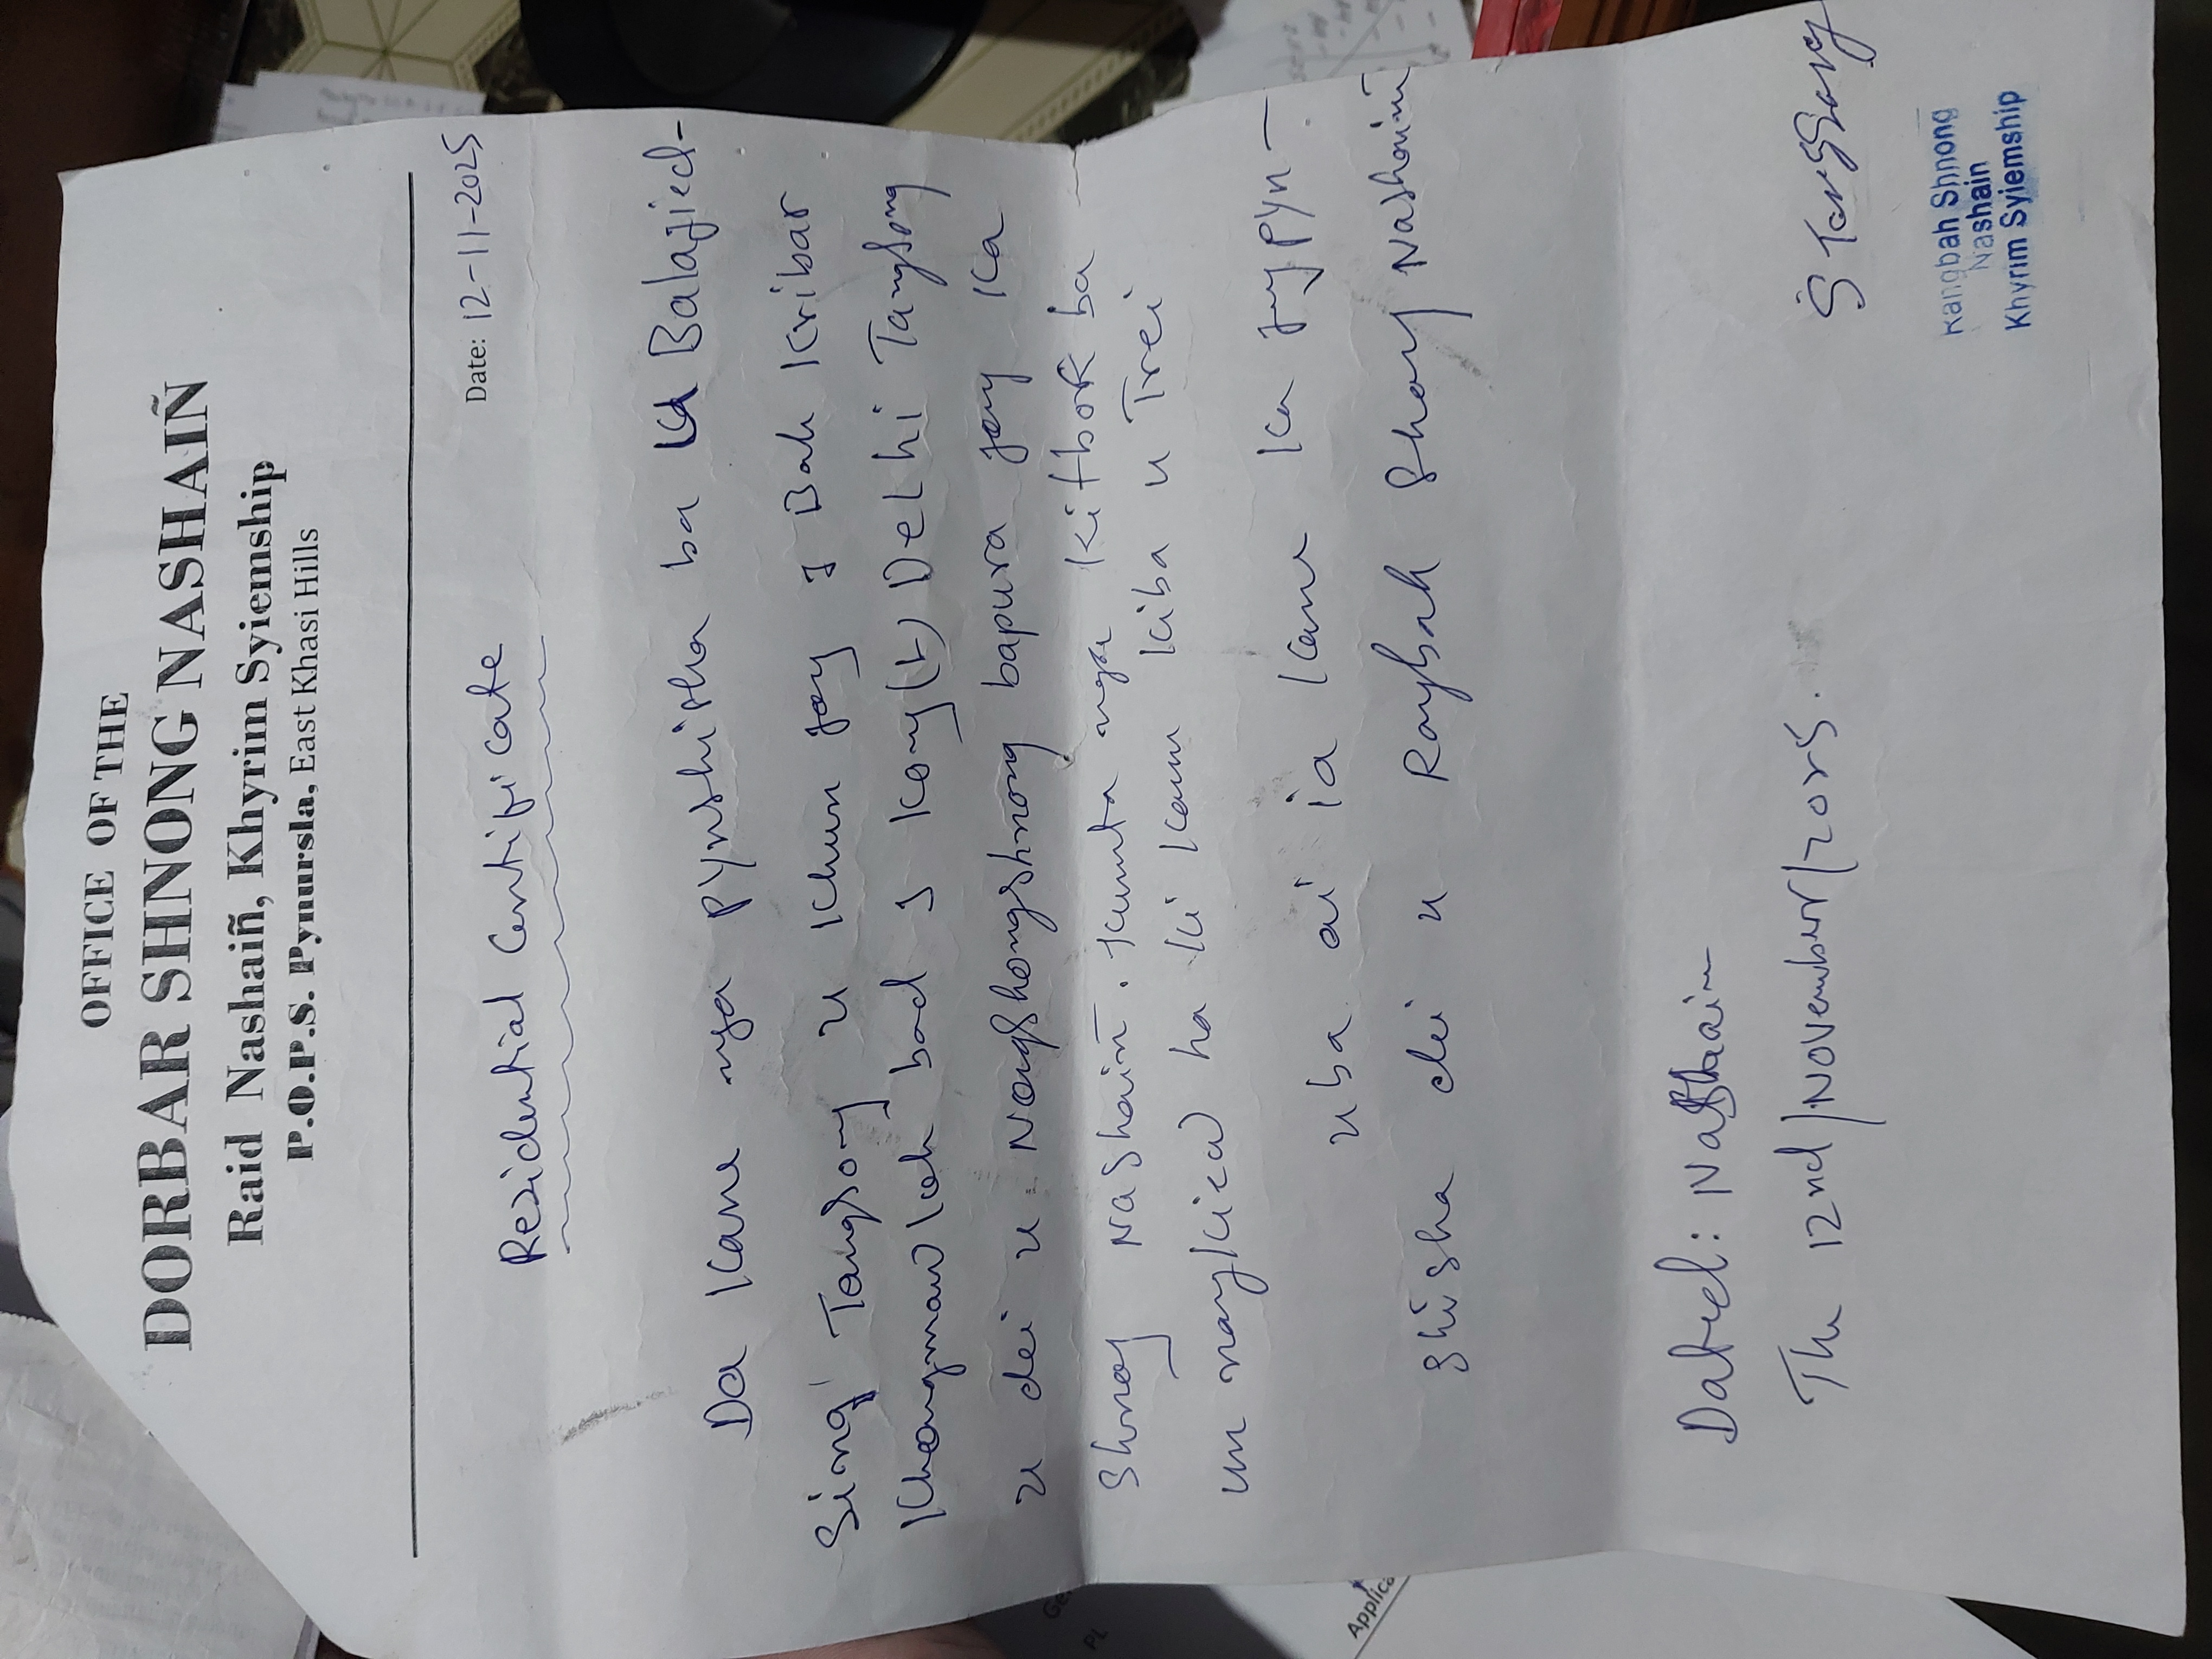 OFFICE OF THE
DORBAR SHNONG NASHAIÑ
Raid Nashaiñ, Khyrim Syiemship
P.O.P.S. Pynursla, East Khasi Hills
Date: 12-11-2025
Residential Certificate
Da kane nga pynshisha ba U Balajied-
sing Tangsong u khun jong I Bah Kribar
Khongmawloh bad I Kong (L) Delhi Tangsong
u dei u Nongshongshnong bapura jong ka
Shnong Nashaiñ. Kumta nga kitbok ba
un mangkiew ha ki kam kiba u Trei
uba ai ia kane ka jingpyn-
shisha dei u Rangbah Shnong Nashaiñ
Dated: Nashain
The 12nd/November/2025.
S Tangsang
Rangbah Shnong
Nashain
Khyrim Syiemship
Applica
PL